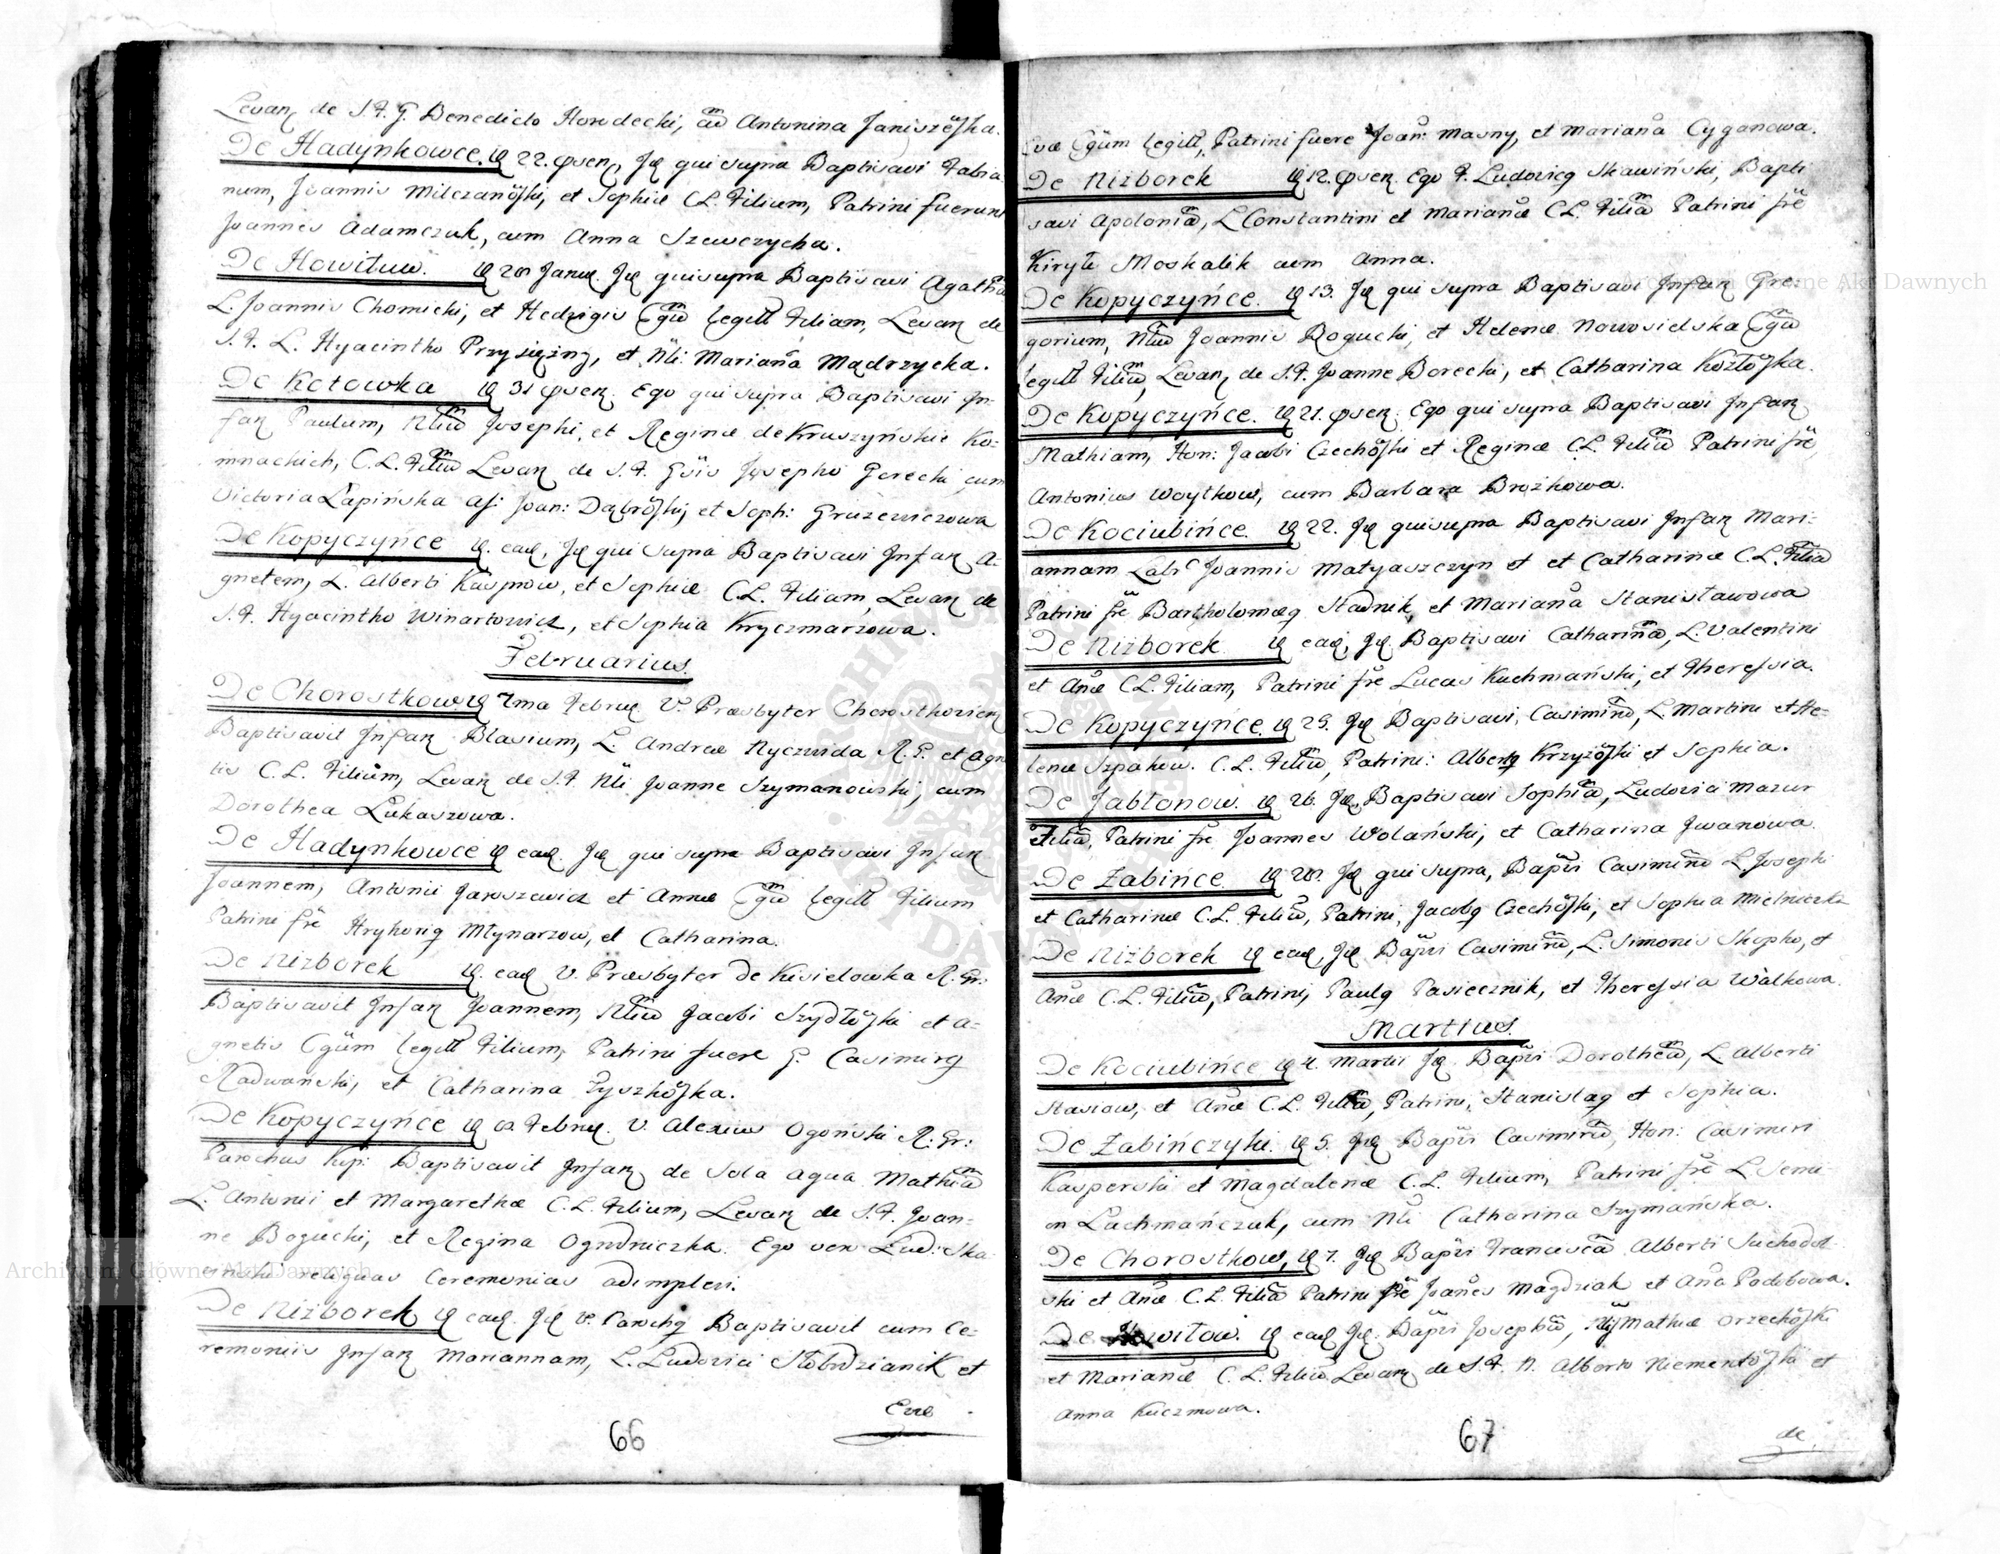 Levan de S. F. G. Benedicto Horodecki, cu Antonina Janiszeska.
De Hadynkowce. 22. Id qui supra Baptisavi Fabia
num, Joannis Milczanoski, et Sophiæ C.L. Filium, Patrini fuerunt
Joannes Adamczuk, cum Anna Szewczycha.
De Howiluw. 28 Janu. Id qui supra Baptisavi Agatha
L. Joannis Chomicki, et Hedvigis legitt Filiam, Levan de
S. F. L. Hyacintho Przysiężny, et Nli: Mariana Mądrzycka.
De Kotowka 31 Ego qui supra Baptisavi In-
fan Paulum, Josephi, et Reginæ de Kruszyńskie Ko-
minackich, C.L. Levan de S. F. Josepho Gorecki cum
Victoria Łapińska as: Joan: Dąbroski, et Soph: Gruzewiczowa
De Kopyczyńce ead, Id qui supra Baptisavi Infan A-
gnetem, L. Alberti Kasprow, et Sophiæ C.L. Filiam, Levan de
S. F. Hyacintho Winartowicz, et Sophia Kryczmarzowa.
Februarius.
De Chorostkow 7ma Februa V. Præsbyter Chorostkovien
Baptisavit Infan Blasium, L. Andreæ Hyczwida R. G. et Agn
tis C. L. Filium, Levan de S. F. Nli Joanne Szymanowski, cum
Dorothea Łukaszowa.
De Hadynkowce ead. Id qui supra Baptisavi Infan
Joannem, Antonii Jaroszewicz et Annæ legitt Filium
Patrini fre Hryhorig Młynarzow, et Catharina.
De Niżborek ead V. Præsbyter de Kisielowka R. Gr:
Baptisavit Infan Joannem, Jacobi Szydłoski et A-
gnetis legitt Filium, Patrini fuere G Casimirg
Radwański, et Catharina Łyszkoska.
De Kopyczyńce Febru. V. Alexius Ogoński R. Gr:
Parochus Kop: Baptisavit Infan de Sola aqua Mathia
L. Antonii et Margarethæ C. L. Filium, Levan de S. F. Joan-
ne Bogucki, et Regina Ogrdniczka. Ego vero Lud: Ska-
winski reliquas Ceremonias adimplevi.
De Niżborek ead. Id V. Parochg Baptisavit cum Ce-
remoniis Infan Mariannam, L. Ludovici Słobdzianik et
Evæ
66
Evæ legitt, Patrini fuere Joan: Masny, et Mariana Cyganowa.
De Niżborek 12. Ego F. Ludovicg Skawiński, Bapti
savi Apolonia, L Constantini et Marianæ C L. Filia Patrini fre
Kiryło Moskalik cum Anna.
De Kopyczyńce. 13. Id qui supra Baptisavi Infan Gre-
gorium, Joannis Bogucki, et Helenæ Nowosielska
legitt Filiu, Levan de S. F. Joanne Borecki, et Catharina Kozłoska.
De Kopyczyńce. 21. Ego qui supra Baptisavi Infan
Mathiam, Hon: Jacobi Czechoski et Reginæ C. L. Filiu Patrini fre
Antonius Woytkow, cum Barbara Brożkowa.
De Kociubińce. 22. Id qui supra Baptisavi Infan Mari-
annam Joannis Matyaszczyn et et Catharinæ C. L. Filia
Patrini fre Bartholomæg Stadnik, et Mariana Stanisławowa
De Niżborek ead, Id. Baptisavi Catharina, L. Valentini
et Anæ C.L. Filiam, Patrini fre Lucas Kuchmański, et Theressia.
De Kopyczyńce. 25. Id Baptisavi, Casimiru, L. Martini et He-
lenæ Szpakow. C. L. Filiu, Patrini: Albertg Krzyżoski et Sophia.
De Jabłonow. 26. Id Baptisavi Sophia, Ludovici Mazur
Filia, Patrini fre Joannes Wolański, et Catharina Jwanowa.
De Żabińce 28. Id qui supra, Bapsi Casimiru L. Josephi
et Catharinæ C.L. Filiu, Patrini, Jacobg Czechoski, et Sophia Mielniczka
De Niżborek ead, Id Bapsi Casimiru, L. Simonis Skopho, et
Anæ C.L. Filiu, Patrini, Paulg Pasiecznik, et Theressia Walkowa.
Martius.
De Kociubińce 4. Martii Id Bapsi Dorothea, L. Alberti
Stasiow, et Anæ C.L. Filia, Patrini, Stanislag et Sophia.
De Żabińczyki. 5. Id Bapsi Casimiru, Hon: Casimiri
Kasperski et Magdalenæ C.L. Filium, Patrini fre L. Semi-
on Lachmańczuk, cum Nli Catharina Szymańska.
De Chorostkow, 7. Id Bapsi Francisca Alberti Suchodol-
ski et Anæ C.L. Filia Patrini fre Joanes Magdziak et Ana Podobowa.
De Howiłow. ead Id. Bapsi Josephu, Mathiæ Orzechoski
et Marianæ C. L. Filiu Levan de S. F. N. Alberto Niementoski et
Anna Kuczmowa.
67
de
Archiwum Główne Akt Dawnych
Archiwum Główne Akt Dawnych